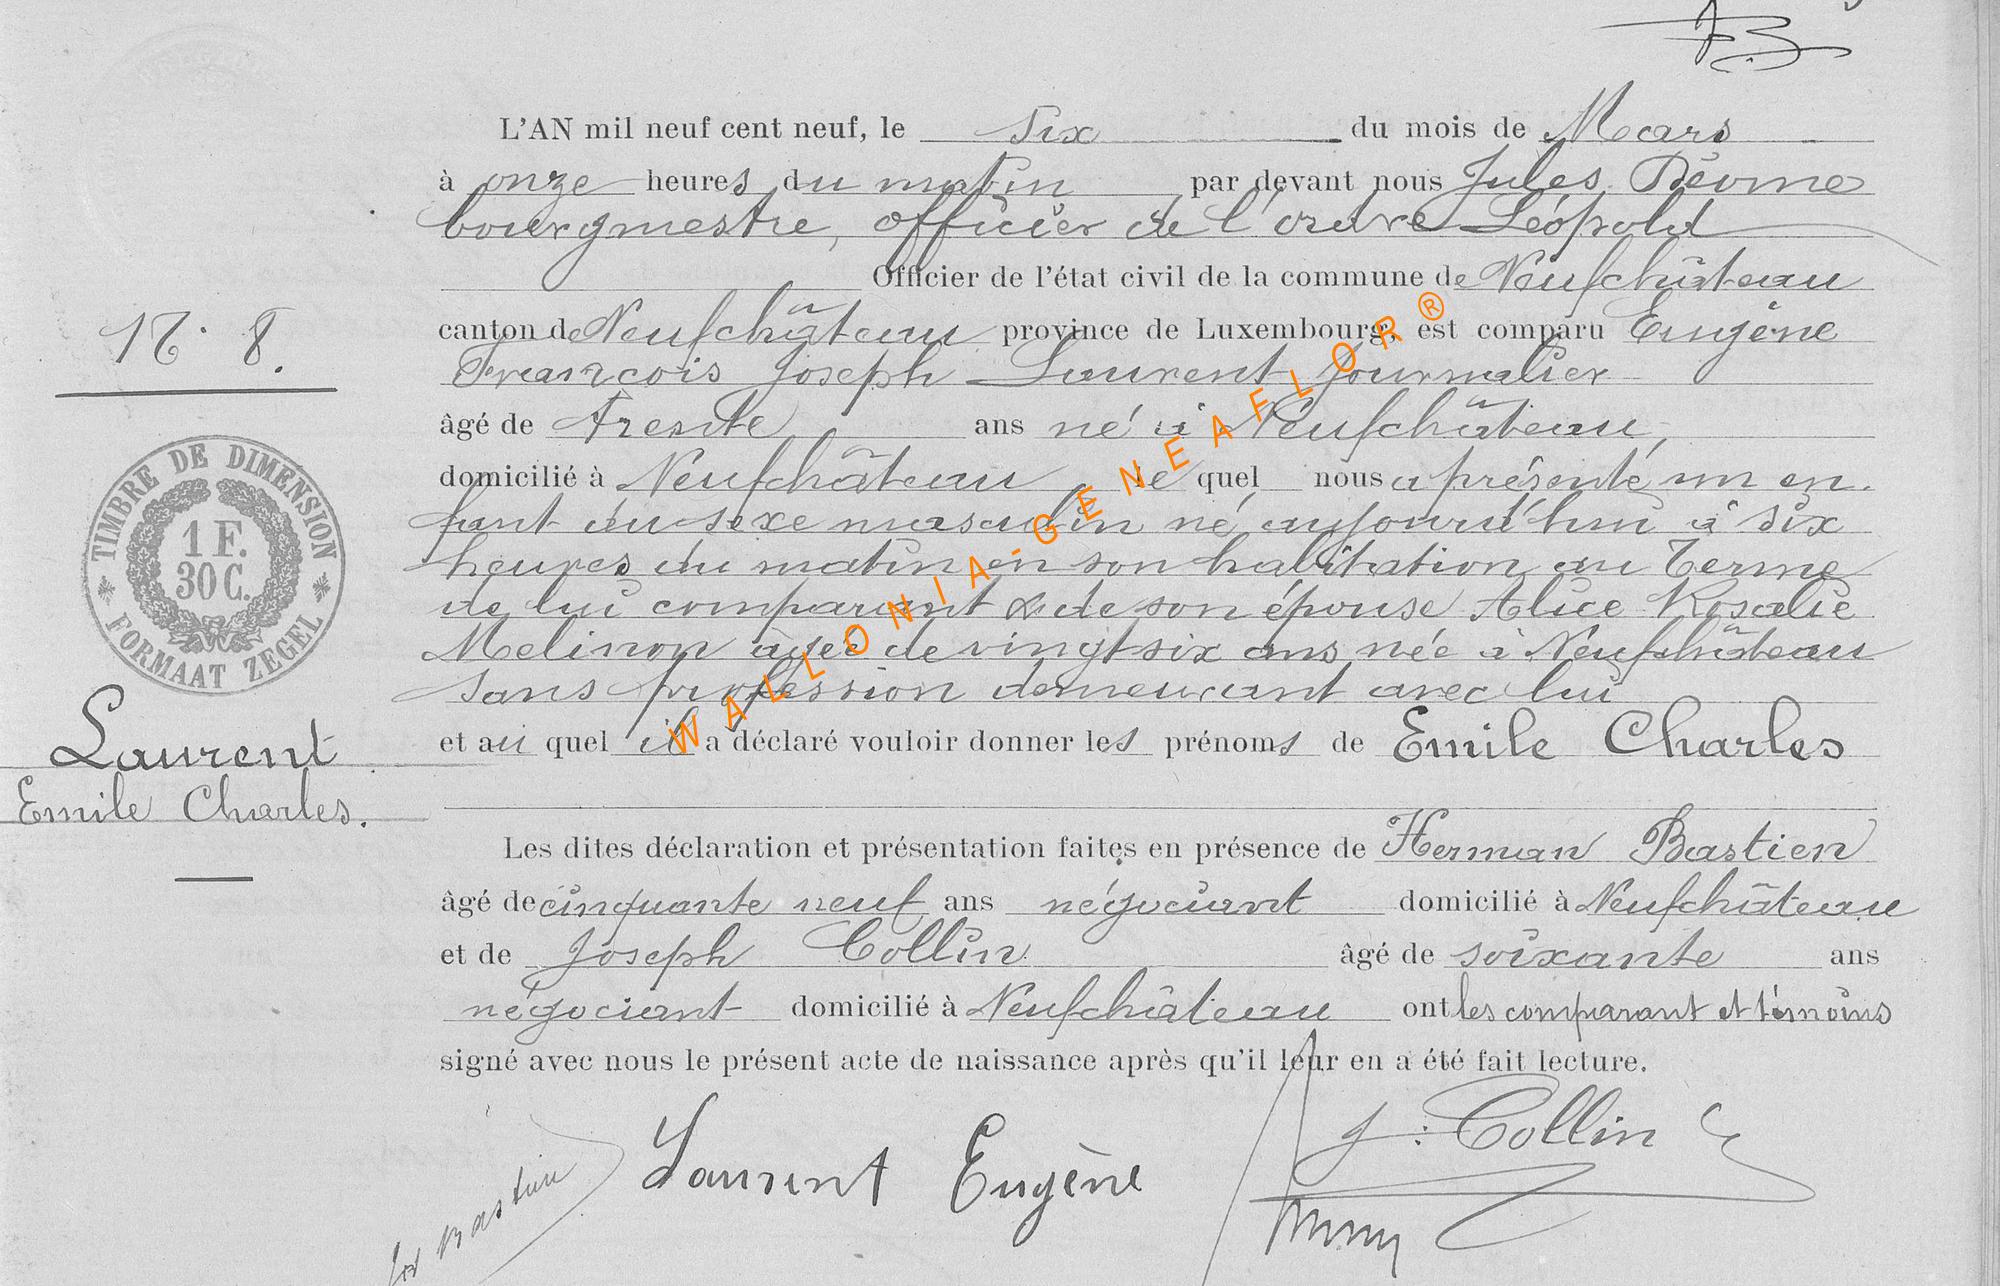 L'AN mil neuf cent neuf, le six du mois de Mars
à onze heures du matin par devant nous Jules
bourgmestre, officier de l'ordre Léopold
Officier de l'état civil de la commune de Neufchâteau
N° 8.
canton de Neufchâteau province de Luxembourg, est comparu Eugène
François Joseph Laurent journalier
âgé de trente ans né à Neufchâteau,
domicilié à Neufchâteau, le quel nous a présenté un en-
fant du sexe masculin né aujourd'hui à six
heures du matin en son habitation au Terme
de lui comparant & de son épouse Alice Rosalie
Melinon âgée de vingt six ans née à Neufchâteau
sans profession demeurant avec lui
et au quel il a déclaré vouloir donner les prénoms de Emile Charles
TIMBRE DE DIMENSION
1 F.
30 C.
FORMAAT ZEGEL
Laurent
Emile Charles.
Les dites déclaration et présentation faites en présence de Herman Bastien
âgé de cinquante neuf ans négociant domicilié à Neufchâteau
et de Joseph Collin âgé de soixante ans
négociant domicilié à Neufchâteau ont les comparant et témoins
signé avec nous le présent acte de naissance après qu'il leur en a été fait lecture.
J. Collin
Laurent Eugène
Bastien
WALLONIA-GENEAFLOR®